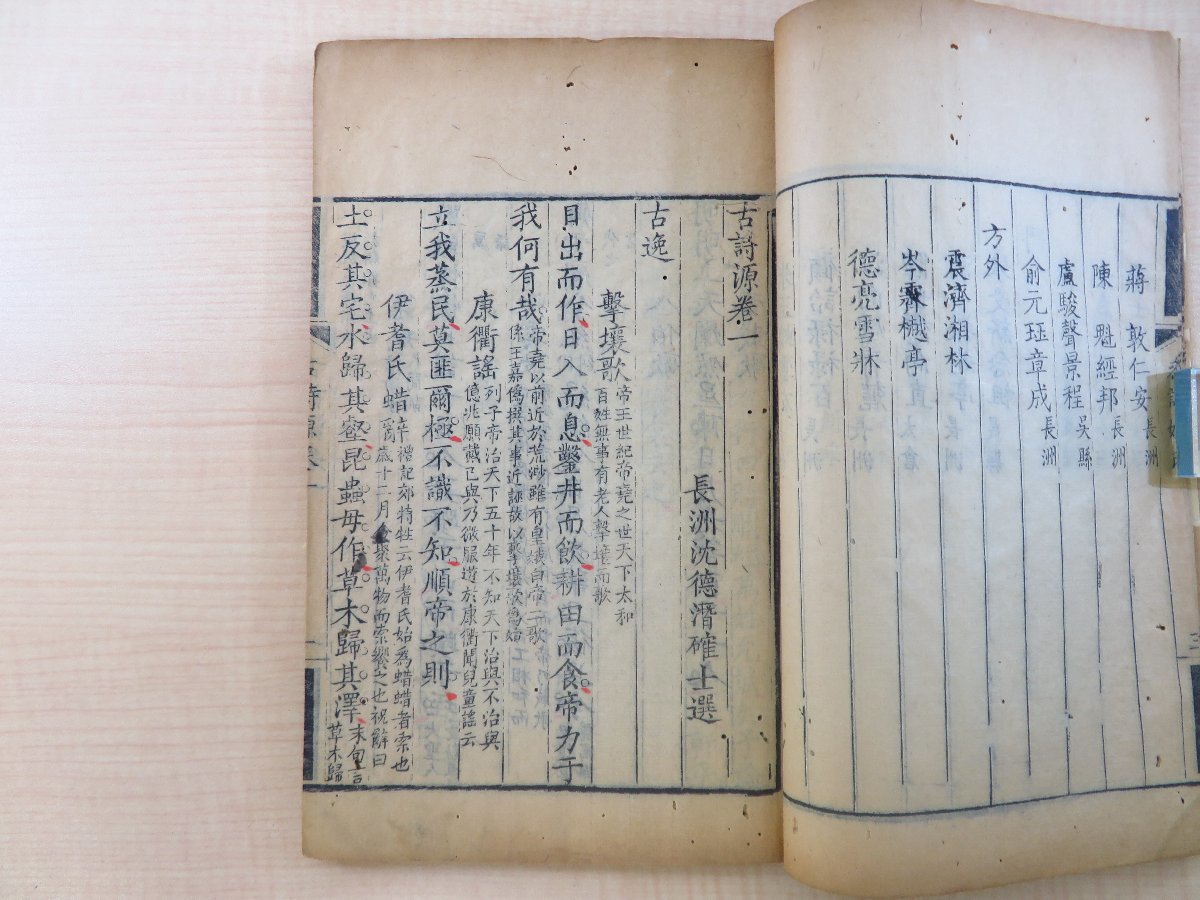 蔣　敦仁安 長洲
陳　魁經邦 長洲
盧駿聲景程 吳縣
俞元珽章成 長洲
方外
震濟湘林
岑霽樾亭
德亮雪牀
古詩源卷一
長洲沈德潛確士選
古逸
擊壤歌 帝王世紀帝堯之世天下太和
百姓無事有老人擊壤而歌
日出而作日入而息鑿井而飲耕田而食帝力于
我何有哉 帝堯以前近於荒渺雖有皇娥白帝二歌
係王嘉僞撰其事近誣故以擊壤歌爲始
康衢謠 列子帝治天下五十年不知天下治與不治與
億兆願戴己與乃微服遊於康衢聞兒童謠云
立我蒸民莫匪爾極不識不知順帝之則
伊耆氏蜡辭 禮記郊特牲云伊耆氏始爲蜡蜡者索也
歲十二月合聚萬物而索饗之也祝辭曰
土反其宅水歸其壑昆蟲毋作草木歸其澤 末句言
草木歸